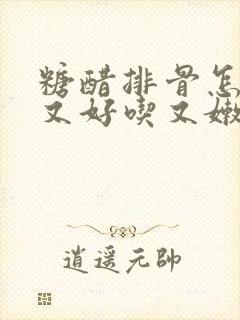 糖醋排骨怎
又好喫又嫩
逍遥元帥